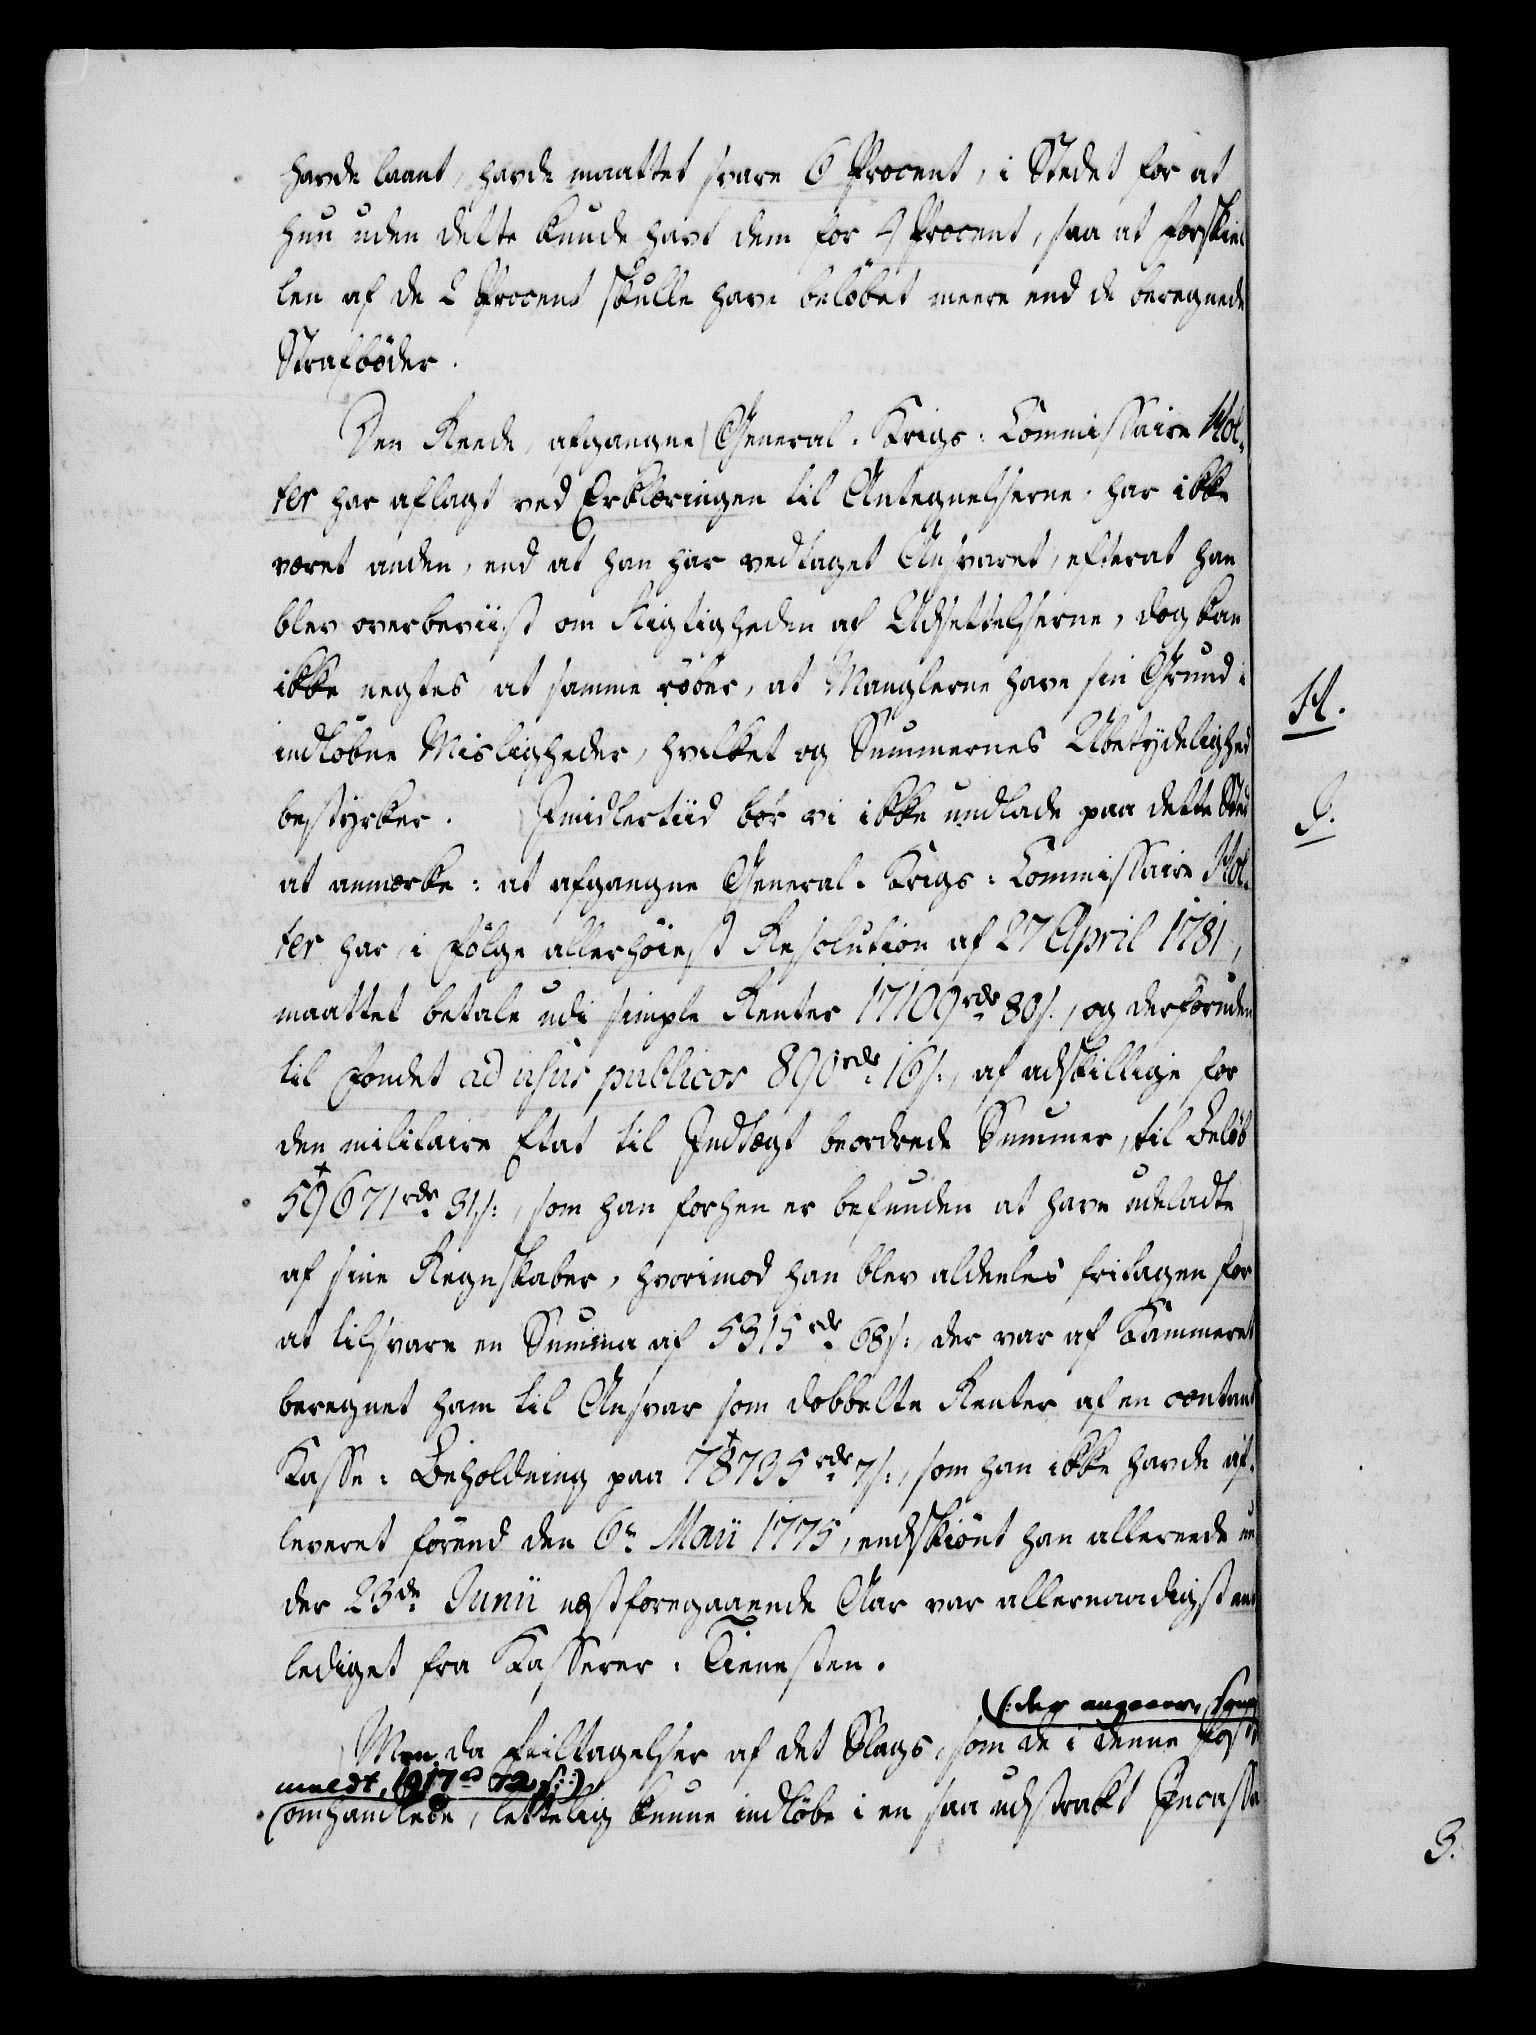 havde laant, havde maattet svare 6 Procent, i Stedet for at
hun uden dette kunde havt dem for 4 Procent, saa at Forskiel
len af de 2 Procent skulle have beløbet meere end de beregnede
Strafbøder.
Den Reede, afgangne General-Krigs-Commissaire Hol-
ter har aflagt ved Erklæringen til Antegnelserne, har ikke
været anden, end at han har vedtaget Ansvaret, efterat han
blev overbeviist om Rigtigheden af Udsettelserne, dog kan
ikke negtes, at samme røber, at Manglerne have sin Grund i
indløbne Misligheder, hvilket og Summernes Ubetydelighed
bestyrker. Imidlertiid bør vi ikke undlade paa dette Sted
at anmærke: at afgangne General-Krigs-Commissaire Hol-
ter har, i Følge allerhøiest Resolution af 27 April 1781,
maattet betale udi simple Renter 17109 rdr 80 s., og desforuden
til Fondet ad usus publicos 890 rdr 16 s., af adskillige for
den militaire Etat til Indtægt beordrede Summer, til Beløb
59671 rdr 31 s., som han forhen er befunden at have udeladte
af sine Regnskaber, hvorimod han blev aldeeles fritagen for
at tilsvare en Summa af 5315 rdr 68 s., der var af Kammeret
beregnet ham til Ansvar som dobbelte Renter af en contant
Kasse-Beholdning paa 78735 rdr 7 s., som han ikke havde af-
leveret førend den 6te Maii 1775, endskiønt han allereede un
der 23de Junii næstforegaaende Aar var allernaadigst ent
lediget fra Kasserer-Tienesten.
(: der angaaer, som
Men da Feiltagelser af det Slags, som de i denne Post
meldt, 1917 rd 72 s:)
omhandlede, lettelig kunne indløbe i en saa udstrakt Incassa
H.
J.
3.